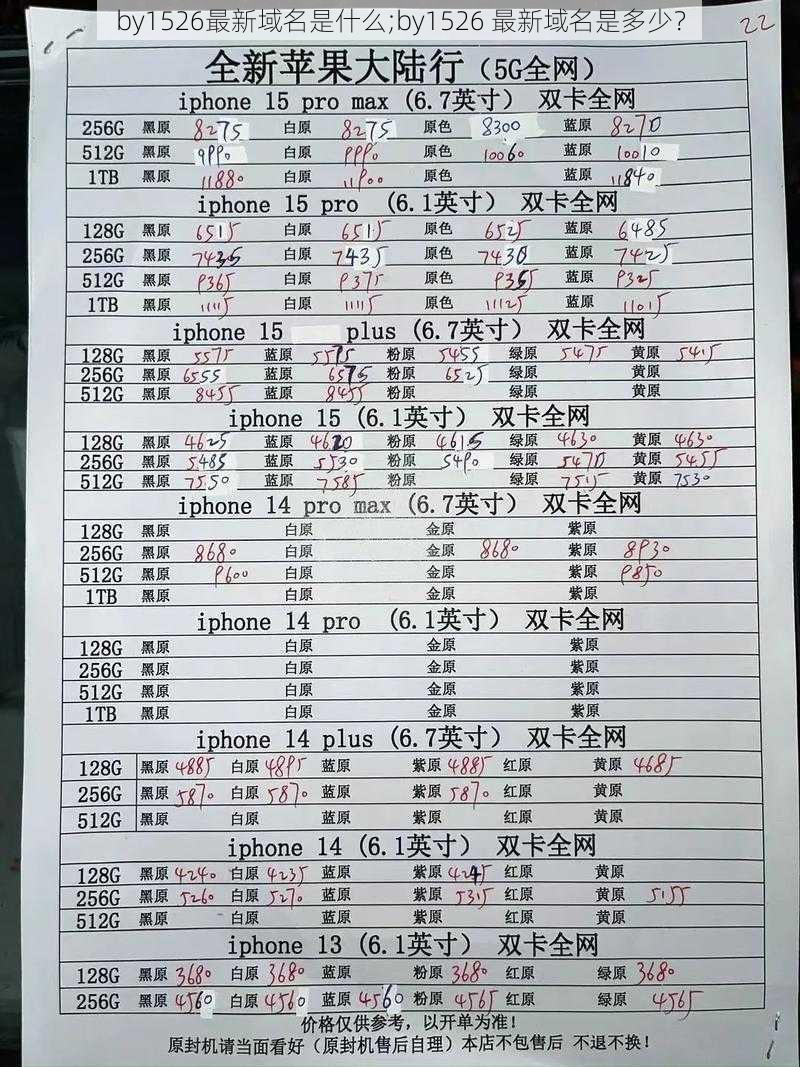 by1526最新域名是什么;by1526 最新域名是多少？
22
全新苹果大陆行（5G全网）
iphone 15 pro max (6.7英寸） 双卡全网
256G 黑原 8275 白原 8275 原色 8300 蓝原 8270
512G 黑原 9990 白原 9990 原色 10060 蓝原 10010
1TB 黑原 11880 白原 11900 原色 蓝原 11840
iphone 15 pro （6.1英寸） 双卡全网
128G 黑原 6515 白原 6515 原色 6525 蓝原 6485
256G 黑原 7435 白原 7435 原色 7430 蓝原 7425
512G 黑原 9365 白原 9375 原色 9365 蓝原 9325
1TB 黑原 11115 白原 11115 原色 11125 蓝原 11015
iphone 15 plus (6.7英寸） 双卡全网
128G 黑原 5575 蓝原 5575 粉原 5455 绿原 5475 黄原 5415
256G 黑原 6555 蓝原 6575 粉原 6525 绿原 黄原
512G 黑原 8455 蓝原 8455 粉原 绿原 黄原
iphone 15 (6.1英寸） 双卡全网
128G 黑原 4625 蓝原 4620 粉原 4615 绿原 4630 黄原 4630
256G 黑原 5485 蓝原 5530 粉原 5490 绿原 5470 黄原 5455
512G 黑原 7550 蓝原 7585 粉原 绿原 7515 黄原 7530
iphone 14 pro max (6.7英寸） 双卡全网
128G 黑原 白原 金原 紫原
256G 黑原 8680 白原 金原 8680 紫原 8930
512G 黑原 9600 白原 金原 紫原 9850
1TB 黑原 白原 金原 紫原
iphone 14 pro （6.1英寸） 双卡全网
128G 黑原 白原 金原 紫原
256G 黑原 白原 金原 紫原
512G 黑原 白原 金原 紫原
1TB 黑原 白原 金原 紫原
iphone 14 plus (6.7英寸） 双卡全网
128G 黑原 4885 白原 4895 蓝原 紫原 4885 红原 黄原 4685
256G 黑原 5870 白原 5870 蓝原 紫原 5870 红原 黄原
512G 黑原 白原 蓝原 紫原 红原 黄原
iphone 14 (6.1英寸） 双卡全网
128G 黑原 4240 白原 4235 蓝原 紫原 4245 红原 黄原
256G 黑原 5260 白原 5270 蓝原 紫原 5315 红原 黄原 5155
512G 黑原 白原 蓝原 紫原 红原 黄原
iphone 13 (6.1英寸） 双卡全网
128G 黑原 3680 白原 3680 蓝原 粉原 3680 红原 绿原 3680
256G 黑原 4560 白原 4560 蓝原 4560 粉原 4565 红原 绿原 4565
价格仅供参考，以开单为准！
原封机请当面看好（原封机售后自理）本店不包售后 不退不换！